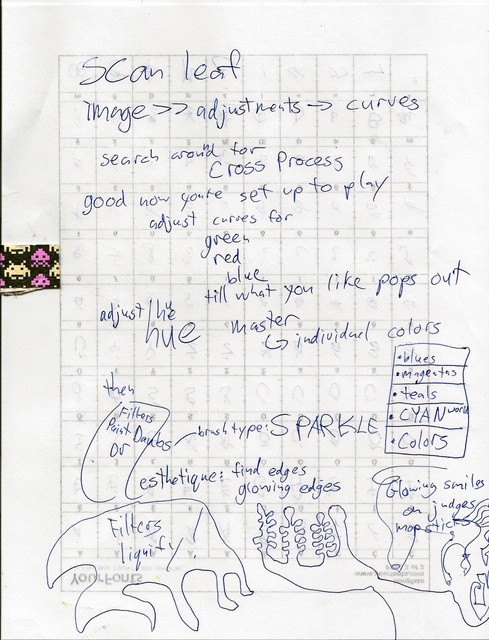 Scan leaf
Image >> adjustments → curves
search around for
Cross Process
good now you're set up to play
adjust curves for
green
red
blue
till what you like pops out
adjust the
hue
master
individual colors
• blues
• magentas
• teals
• CYAN world
• Colors
then
Filters
Paint Daubs
brush type: SPARKLE
esthetique: find edges
glowing edges
Glowing smiles
on judges
mop stick
Filters
liquify
YourFonts